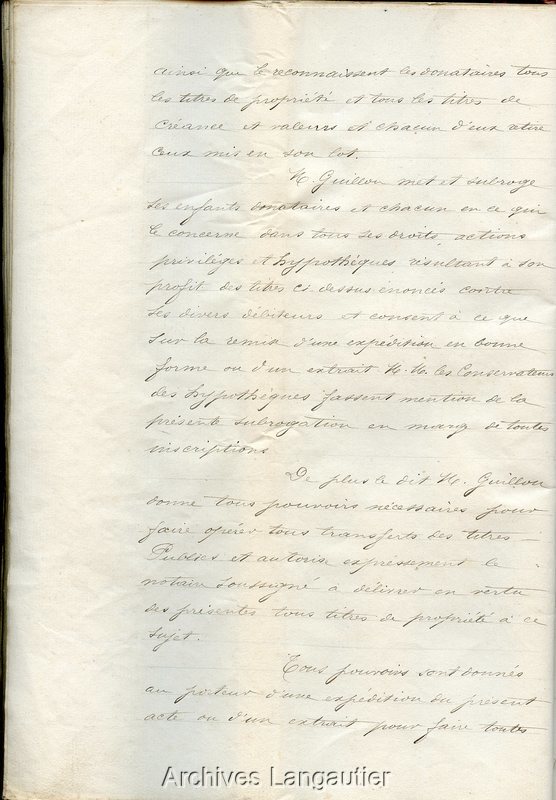 ainsi que le reconnaissent les donataires tous
les titres de propriété et tous les titres de
créance et valeurs et chacun d'eux retire
ceux mis en son lot.
M. Guillou met et subroge
ses enfants donataires et chacun en ce qui
le concerne dans tous ses droits, actions
privilèges et hypothèques résultant à son
profit des titres ci dessus énoncés contre
ses divers débiteurs et consent à ce que
sur la remise d'une expédition en bonne
forme ou d'un extrait M.M. les Conservateurs
des hypothèques fassent mention de la
présente subrogation en marg de toutes
inscriptions
De plus le dit M. Guillou
donne tous pouvoirs nécessaires pour
faire opérer tous transferts des titres
Publics et autorise expressément le
notaire soussigné à délivrer en vertu
des présentes tous titres de propriété à ce
sujet.
Tous pouvoirs sont donnés
au porteur d'une expédition du présent
acte ou d'un extrait pour faire toutes
Archives Langautier